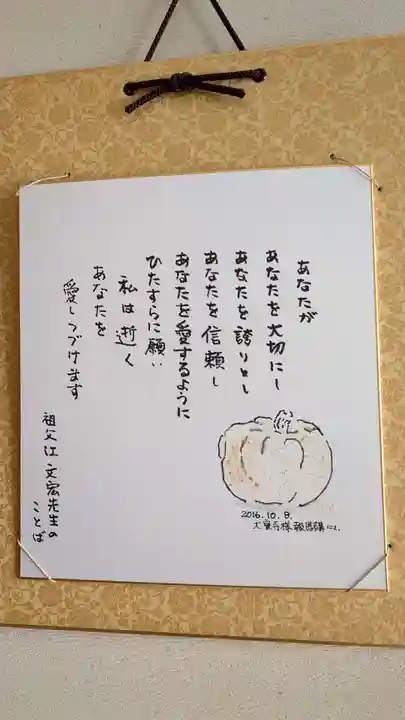 あなたが
あなたを大切にし
あなたを誇りとし
あなたを信頼し
あなたを愛するように
ひたすらに願い
私は逝く
あなたを
愛しつづけます
祖父江文宏先生の
ことば
2016.10.8.
報恩講にて.